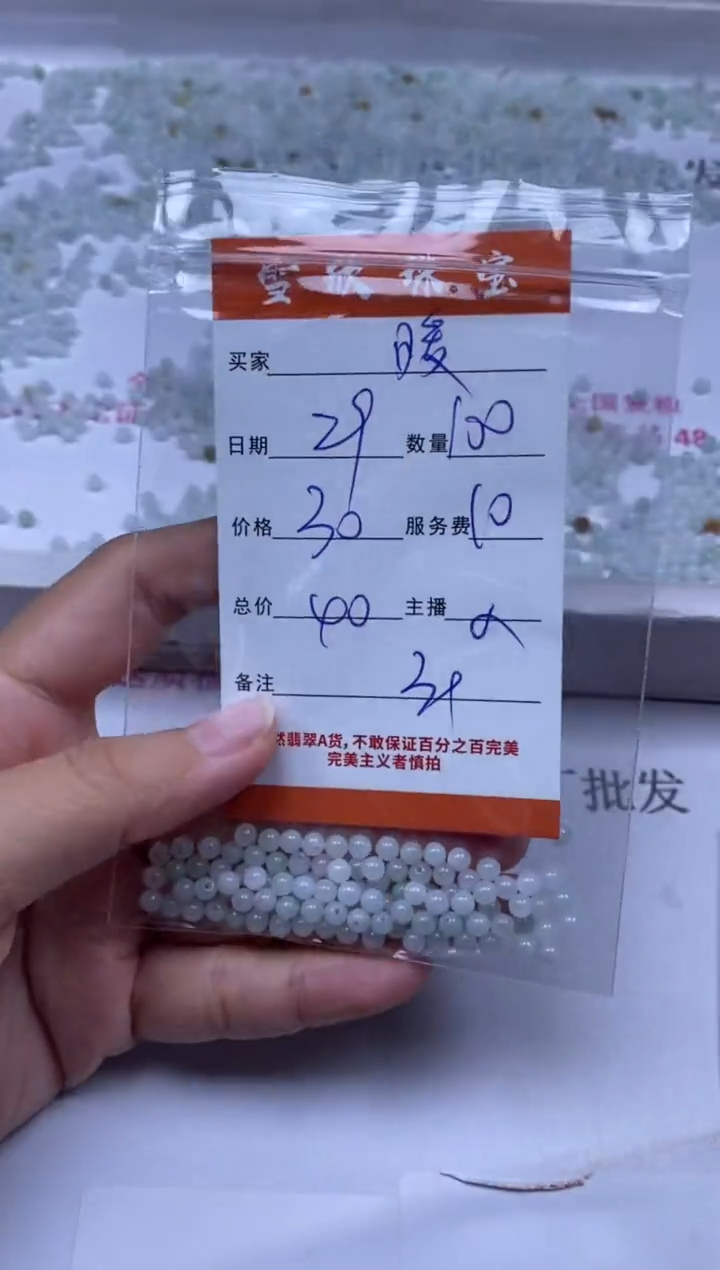 买家 暖
日期 29 数量 100
价格 30 服务费 10
总价 40 主播
备注
然翡翠A货,不敢保证百分之百完美
完美主义者慎拍
批发
48